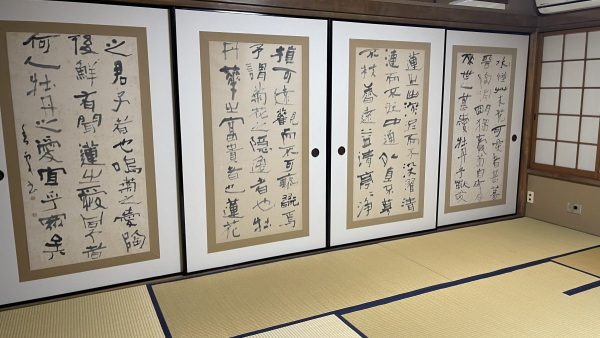 水陸艸木之花可愛者甚蕃
晉陶淵明獨愛菊自李唐
來世人甚愛牡丹予獨愛
蓮之出淤泥而不染濯清
漣而不妖中通外直不蔓
不枝香遠益清亭〻淨
植可遠觀而不可褻翫焉
予謂菊花之隱逸者也牡
丹華之富貴者也蓮花
之君子者也噫菊之愛陶
後鮮有聞蓮之愛同予者
何人牡丹之愛宜乎衆矣